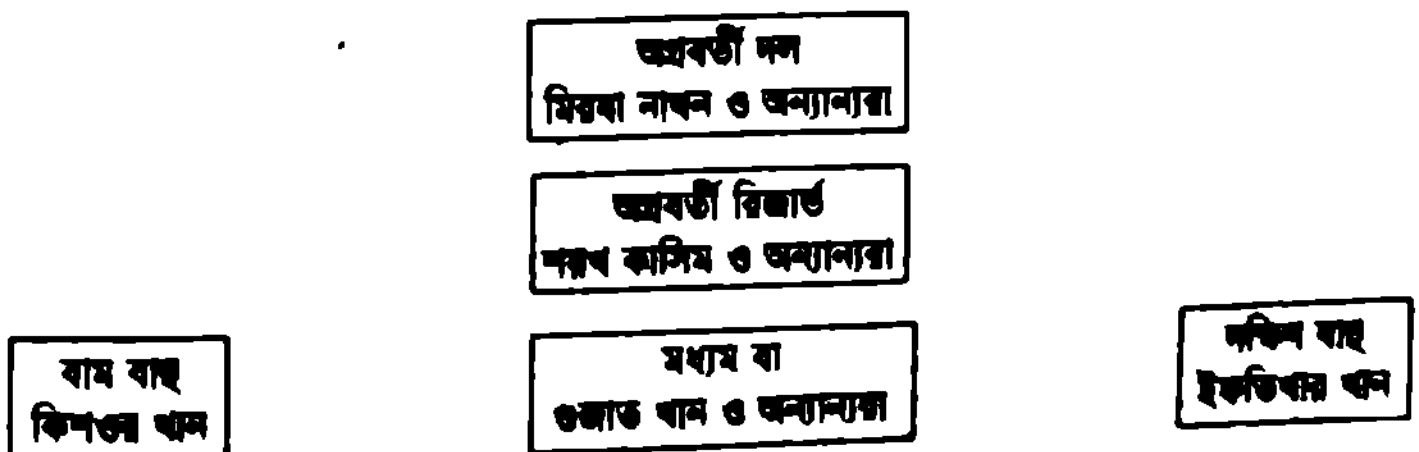 অগ্রবর্তী দল
মিরযা নাথন ও অন্যান্যরা
অগ্রবর্তী রিজার্ভ
শয়খ কাসিম ও অন্যান্যরা
বাম বাহু
কিশওর খান
মধ্যম বা
শুজাত খান ও অন্যান্যরা
দক্ষিণ বাহু
ইফতিখার খান